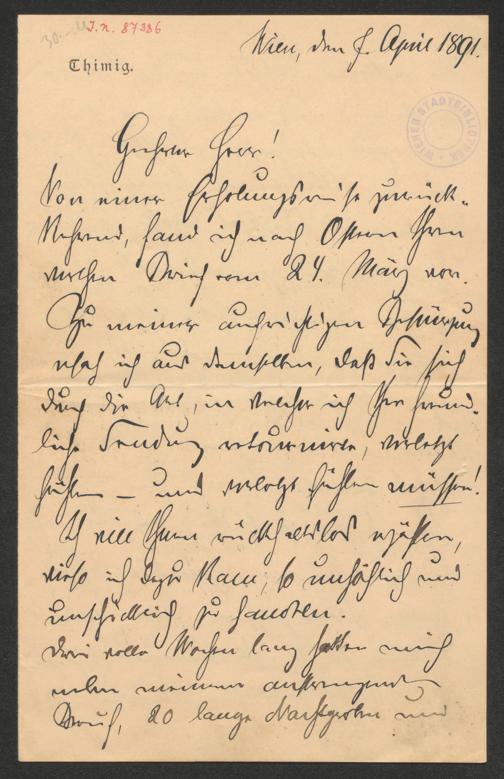 30.–
J.N. 87386
Wien, den 8. April 1891.
Thimig.
WIENER STADTBIBLIOTHEK
Geehrter Herr!
Von einer Erholungsreise zurück-
kehrend, fand ich nach Ostern Ihren
werthen Brief vom 24. März vor.
Zu meiner aufrichtigen Bestürzung
ersah ich aus demselben, daß Sie sich
durch die Art, in welcher ich Ihre freund-
liche Sendung retournirte, verletzt
fühlen – und verletzt fühlen müssen!
Ich will Ihnen rückhaltslos erzählen,
wieso ich dazu kam, so unhöflich und
unschicklich zu handeln.
Drei volle Wochen lang hatten mich
neben meinem anstrengenden
Beruf, 20 lange Nachtproben und